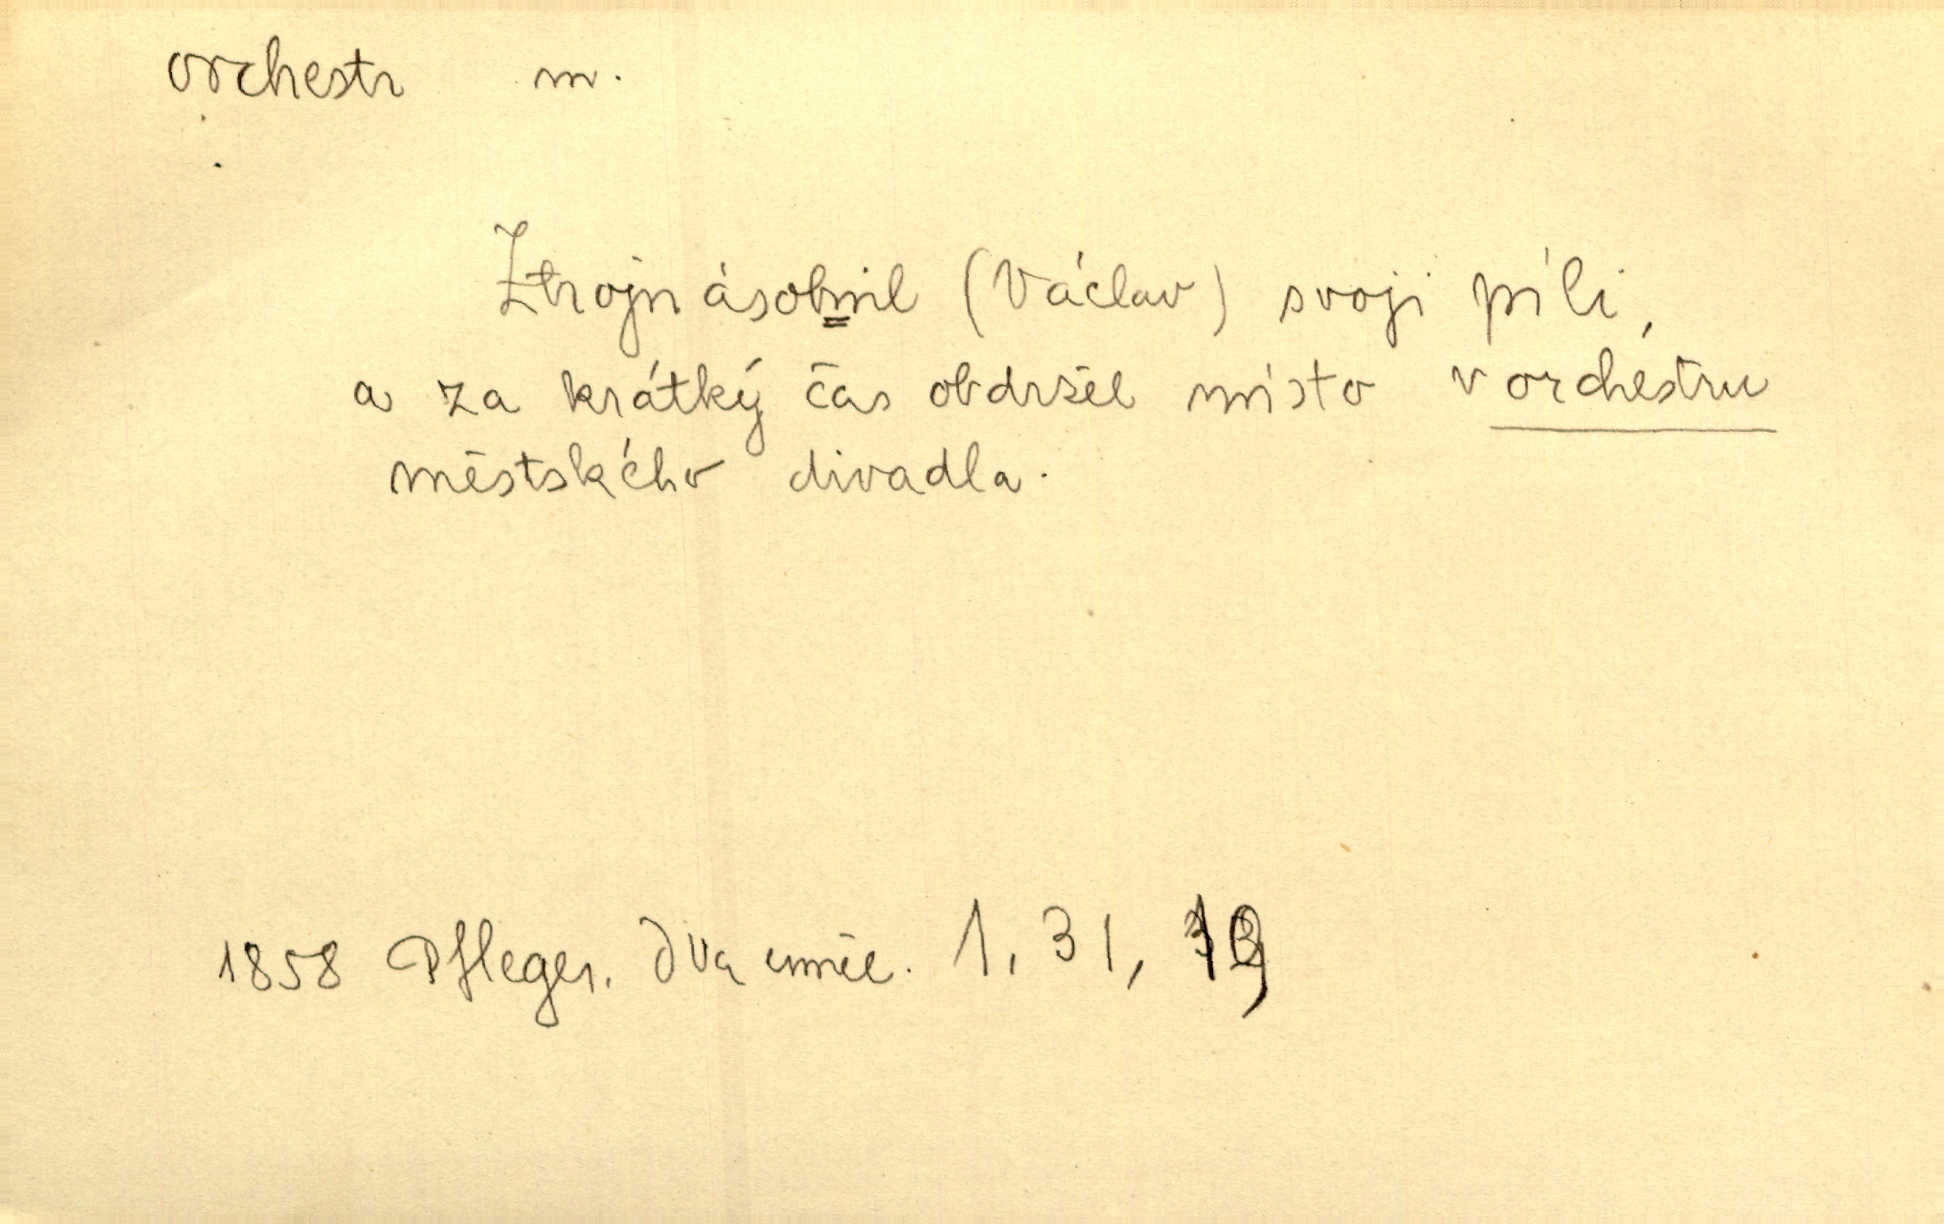 orchestr m.
Ztrojnásobnil (Václav) svoji píli,
a za krátký čas obdržel místo v orchestru
městského divadla.
1858 Pfleger. Dva uměl. 1, 31,